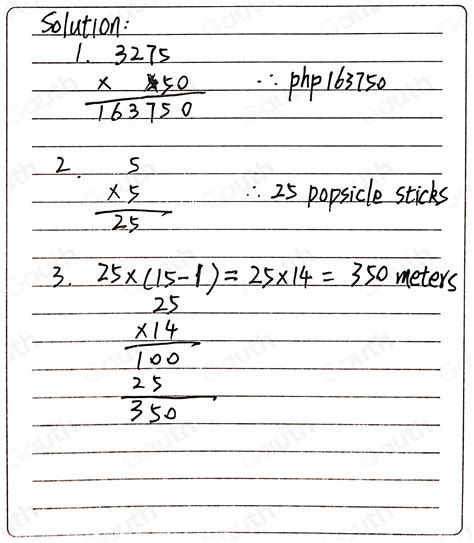 Solution:
1. 3275
x 50 ∴ php 163750
163750
2. 5
x 5 ∴ 25 popsicle sticks
25
3. 25x(15-1) = 25x14 = 350 meters
25
x14
100
25
350